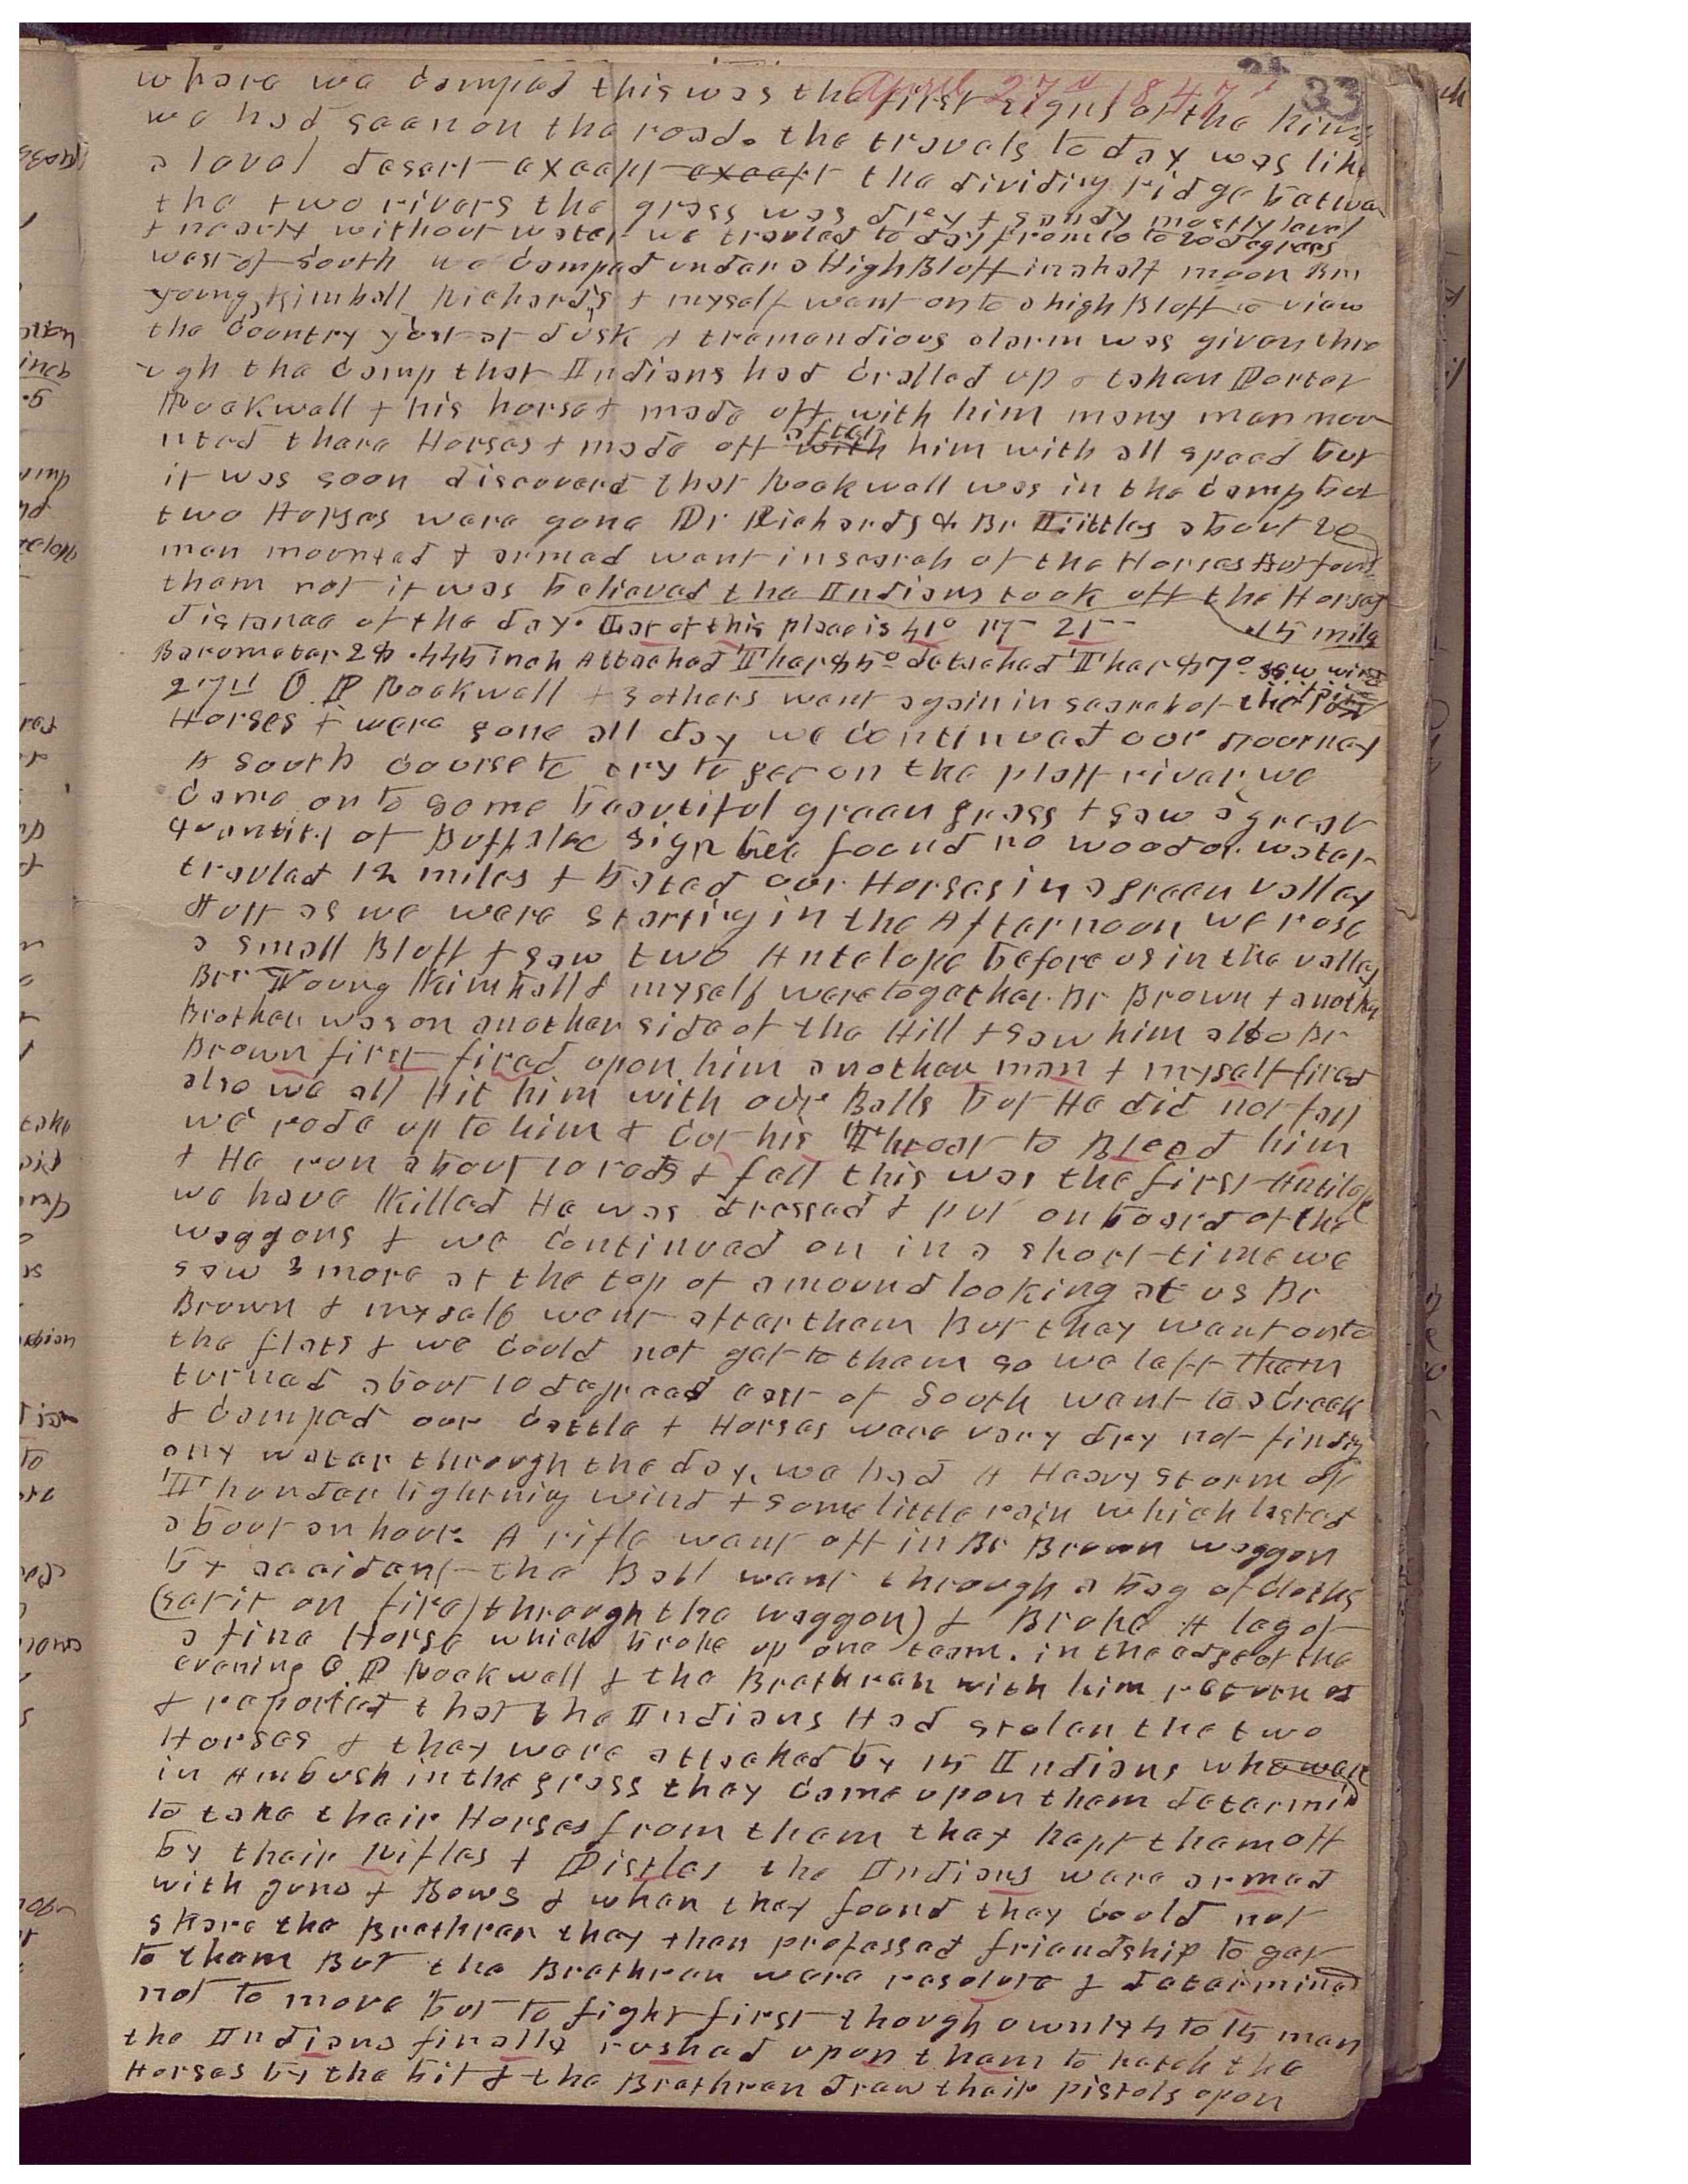 April 27th 1847
33
where we camped this was the first signs of the kind
we had seen on the road. the travels to day was like
a level desert except except the dividing ridge betwe
the two rivers the grass was drey & sandy mostly level
& nearly without water we travled to day from 10 to 20 degrees
west of south we camped under a High Bluff in a half moon Brs
Young, Kimball Richards & myself went onto a high Bluff to view
the country just at dusk A tremendious alarm was given thro
ugh the camp that Indians had cralled up & taken Porter
Rockwell & his horse & made off with him many men mou
nted there Horses & made off with after him with all speed but
it was soon discoverd that Rockwell was in the camp but
two Horses were gone Dr Richards & Br Little's about 20
men mounted & armed went in search of the Horses But found
them not it was believed the Indians took off the Horses
distance of the day. Lat of this place is 41° 17' 21" 15 mile
Barometer 28.445 inch Attached Ther 85° detached Ther 87°
27th O P Rockwell & 3 others went again in search of the lost
Horses & were gone all day we continued our Journey
A South course to try to get on the platt river, we
came onto some beautiful green grass & saw a great
quantity of Buffalo sign but found no wood or water
travled 12 miles & bated our Horses in a green valley
Just as we were starting in the Afternoon we rose
a small Bluff & saw two Antelope before us in the valley
Brs Young Kimball & myself were together. Br Brown & another
Brother was on another side of the Hill & saw him also Br
Brown first fired upon him another man & myself fired
also we all Hit him with our Balls but He did not fall
we rode up to him & cut his Throat to Bleed him
& He run about 10 rods & fell this was the first Antilope
we have Killed He was dressed & put on board of the
waggons & we continued on in a short time we
saw 3 more at the top of a mound looking at us Br
Brown & myself went after them But they went onto
the flats & we could not get to them so we left them
turned about 10 degrees east of South went to a Creek
& camped our cattle & Horses were very dry not finding
any water through the day, we had A Heavy storm of
Thunder lightning wind & some little rain which lasted
about an hour. A rifle went off in Br Brown waggon
by accident the Ball went through a bag of cloths
(set it on fire) through the waggon) & Broke A leg of
a fine Horse which broke up one team. in the edge of the
evening O P Rockwell & the Brethren with him returned
& reported that the Indians Had stolen the two
Horses & they were attacked by 15 Indians who were
in Ambush in the grass they came upon them determin
to take their Horses from them they kept them off
by their Rifles & Pistles the Indians were armed
with guns & Bows & when they found they could not
skare the Brethren they then professed friendship to get
to them But the Brethren were resolute & determined
not to move but to fight first though ownly 4 to 15 men
the Indians finally rushed upon them to ketch the
Horses by the bit & the Brethren drew their pistols upon